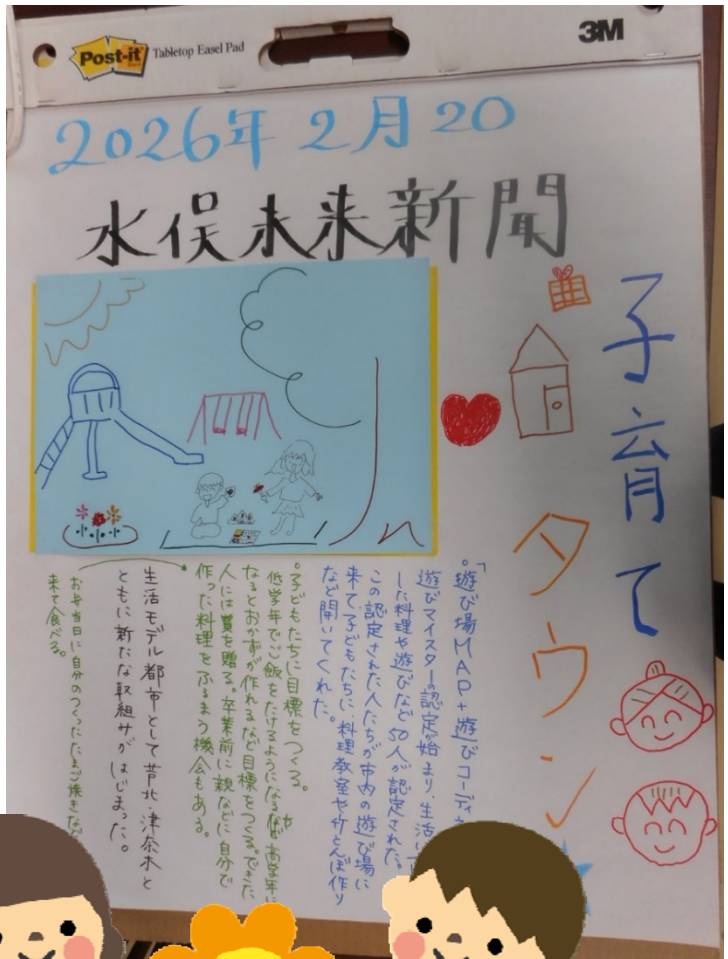 Post-it
Tabletop Easel Pad
3M
2026年2月20
水俣未来新聞
子育て
タウン
「遊び場MAP+遊びコーディ
遊びマイスターの認定が始まり、生活に
した料理や遊びなど50人が認定された。
この認定された人たちが市内の遊び場に
来て子どもたちに、料理教室や竹とんぼ作り
など開いてくれた。
子どもたちに目標をつくる。
低学年でご飯をたけるようになる 高学年に
なるとおかずが作れるなど目標をつくる。できた
人には賞を贈る。卒業前に親などに自分で
作った料理をふるまう機会もある。
生活モデル都市として芦北、津奈木と
ともに新たな取組みがはじまった。
お弁当日に自分のつくったたまご焼きなど
来て食べる。